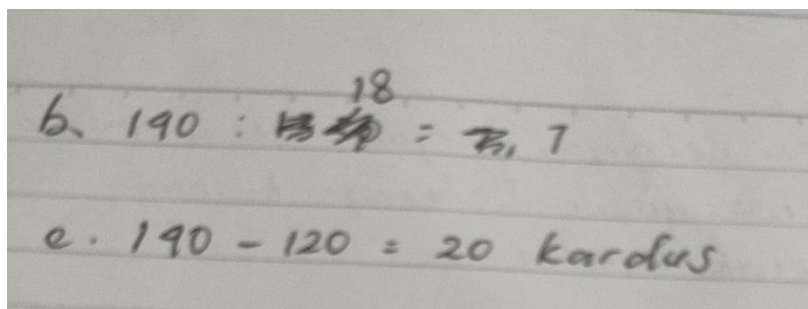 b. 190 : 18 = 7
e. 190 - 120 = 20 kardus